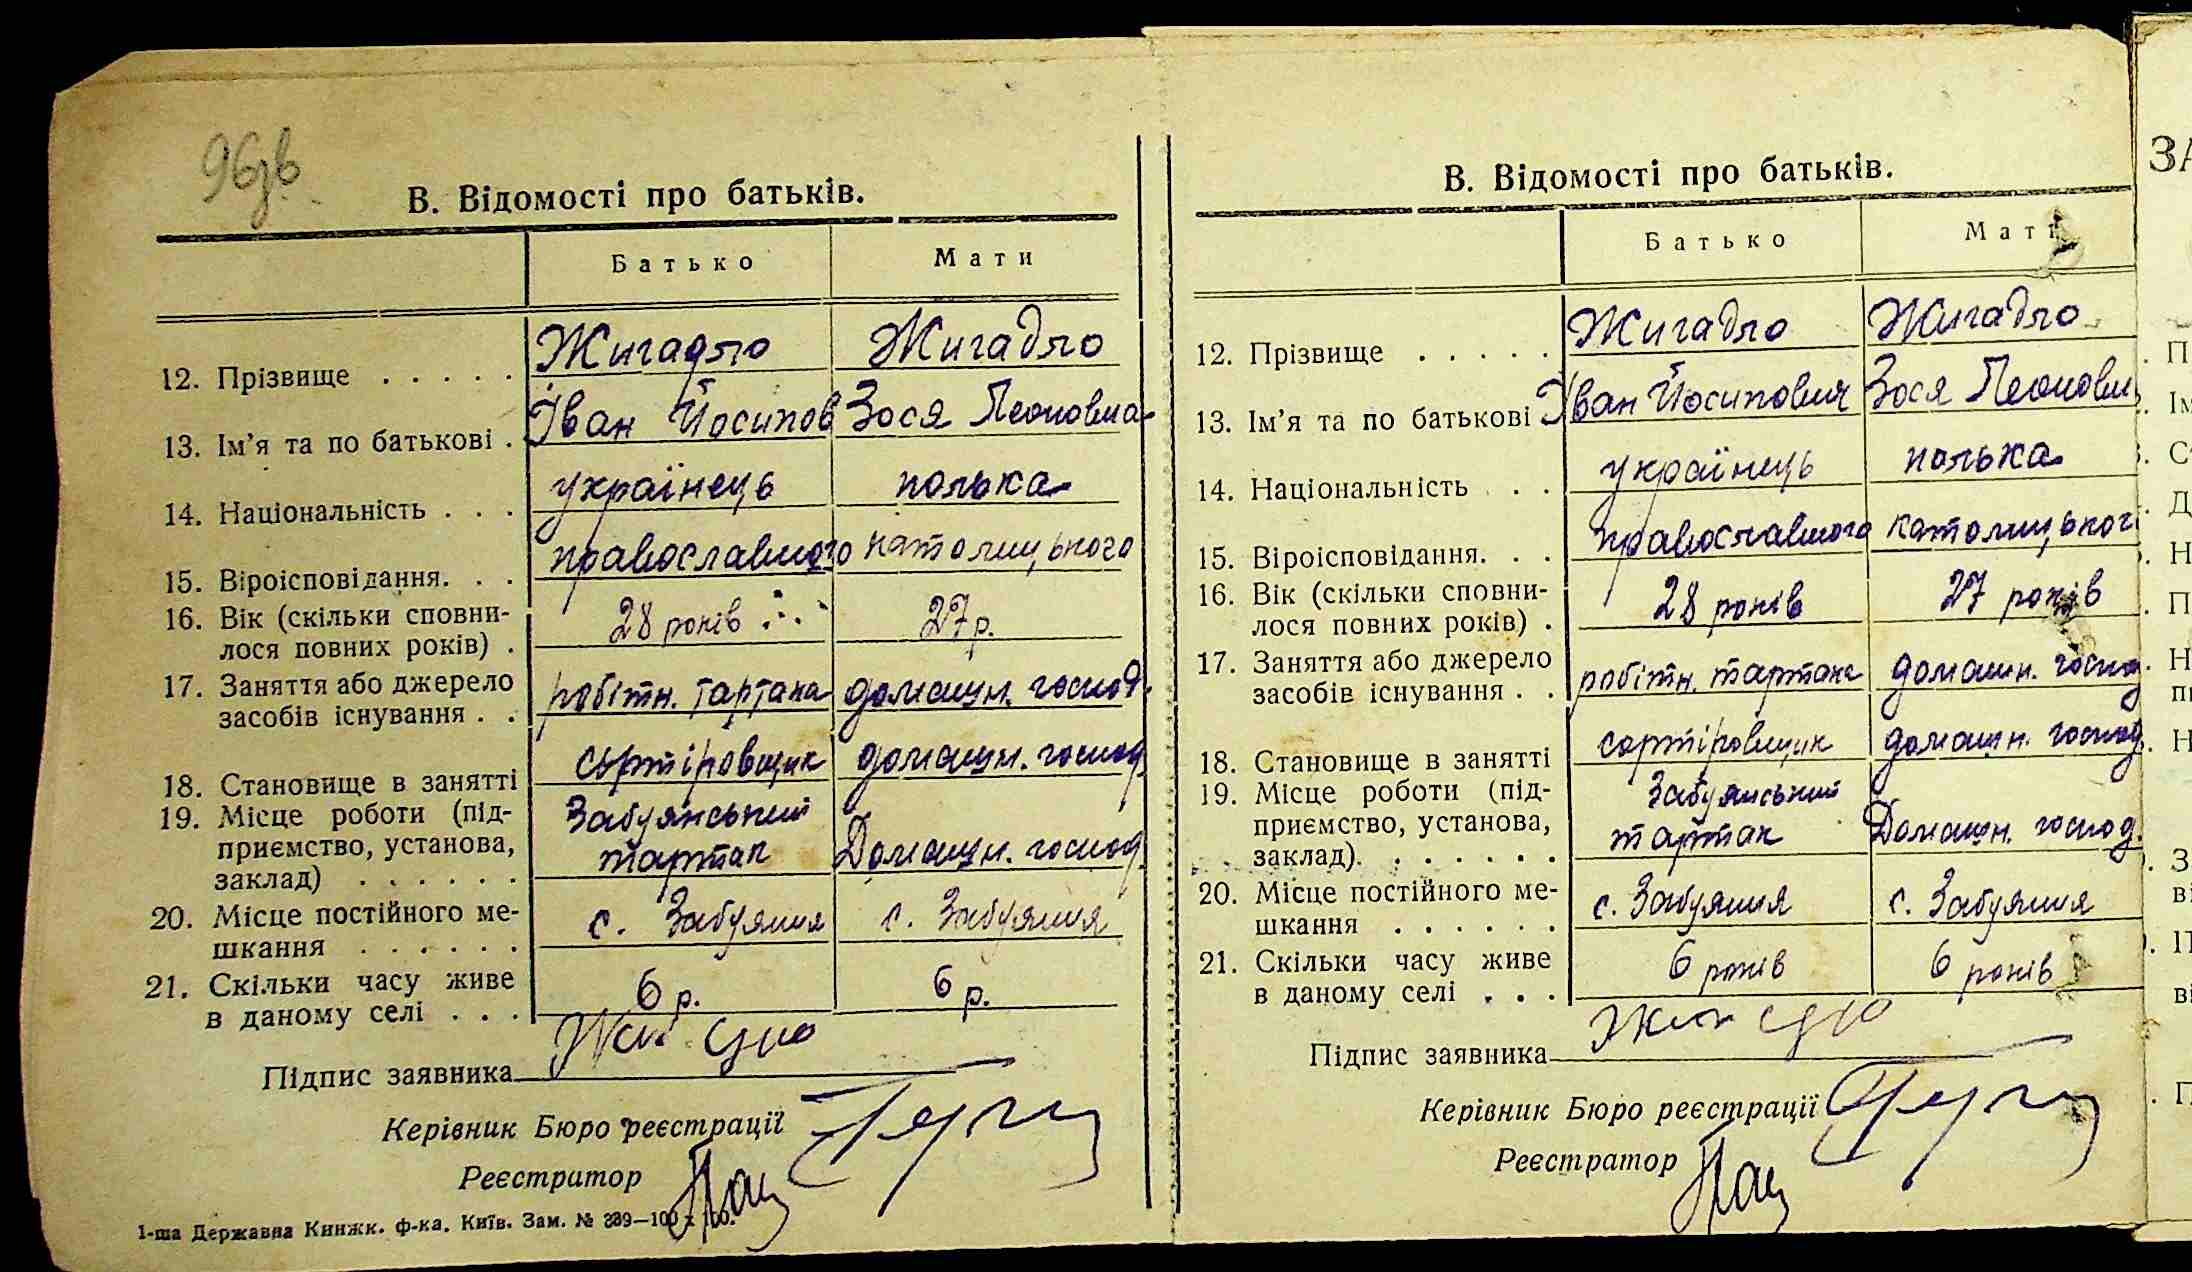 96зв
В. Відомості про батьків.
Батько Мати
12. Прізвище . . . . . Жигадло Жигадло
13. Ім'я та по батькові . Іван Йосипов Зося Леоновна
14. Національність . . . українець полька
15. Віроісповідання. . . православного католицького
16. Вік (скільки сповни-
лося повних років) . 28 років 27 р.
17. Заняття або джерело
засобів існування . . робітн. тартака домашн. господ.
18. Становище в занятті сортіровщик домашн. господ.
19. Місце роботи (під-
приємство, установа,
заклад) . . . . . . Забуянський тартак Домашн. господ.
20. Місце постійного ме-
шкання . . . . . . с. Забуяння с. Забуяння
21. Скільки часу живе
в даному селі . . . 6 р. 6 р.
Підпис заявника
Керівник Бюро реєстрації
Реєстратор
1-ша Державна Книжк. ф-ка. Київ. Зам. №
В. Відомості про батьків.
Батько Маті
12. Прізвище . . . . . Жигадло Жигадло
13. Ім'я та по батькові Іван Йосипович Зося Леоновн
14. Національність . . . українець полька
15. Віроісповідання. . . православного католицьког
16. Вік (скільки сповни-
лося повних років) . 28 років 27 років
17. Заняття або джерело
засобів існування . . робітн. тартака домашн. господ
18. Становище в занятті сортіровщик домашн. господ
19. Місце роботи (під-
приємство, установа,
заклад). . . . . . . Забуянський тартак Домашн. господ.
20. Місце постійного ме-
шкання . . . . . . с. Забуяння с. Забуяння
21. Скільки часу живе
в даному селі . . . 6 років 6 років
Підпис заявника
Керівник Бюро реєстрації
Реєстратор
ЗА